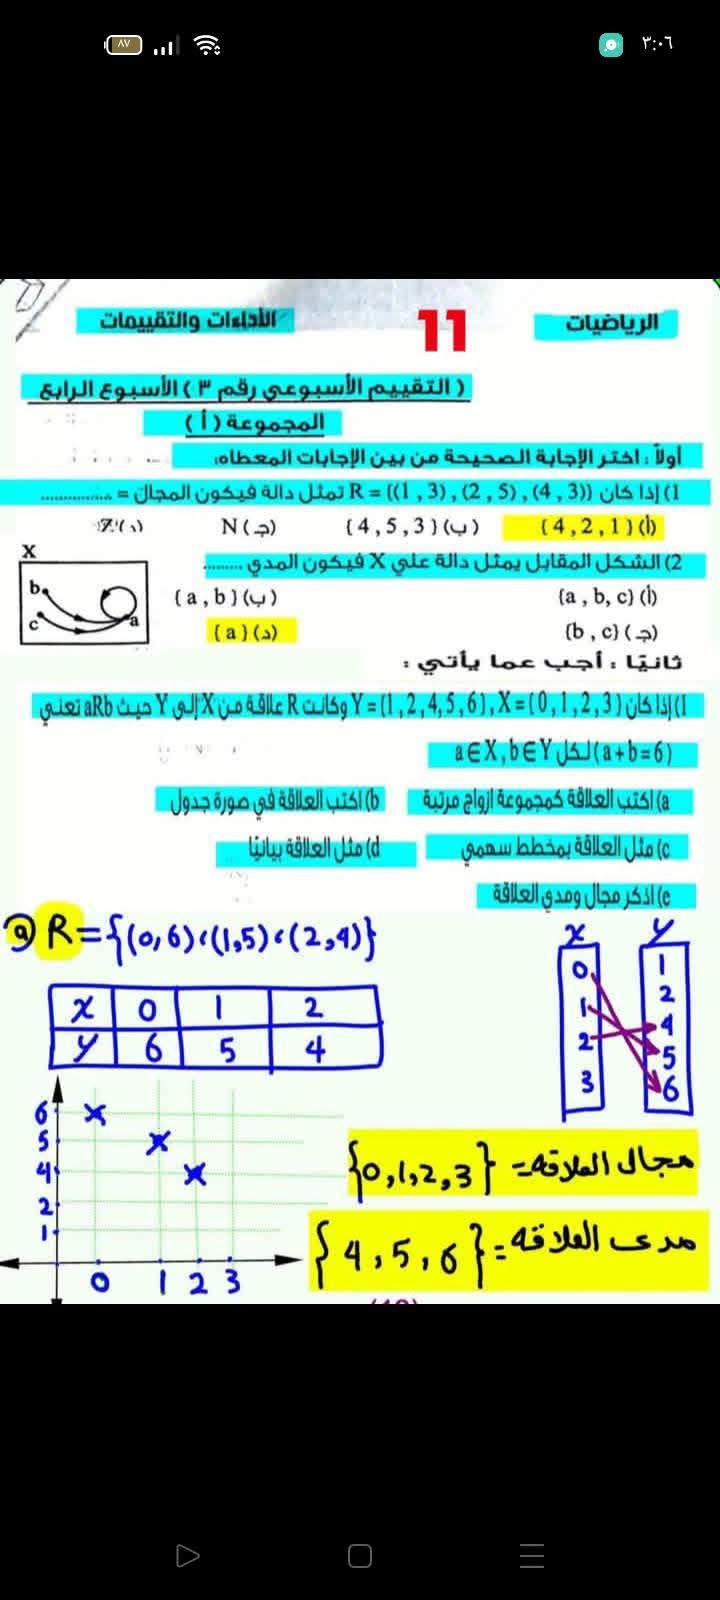 ٨٧
٣:٠٦
الرياضيات
11
الأداءات والتقييمات
( التقييم الأسبوعي رقم ٣ ) الأسبوع الرابع
المجموعة ( أ )
أولاً : اختر الإجابة الصحيحة من بين الإجابات المعطاه:
1) إذا كان R = {(1 , 3) , (2 , 5) , (4 , 3)} تمثل دالة فيكون المجال = ..............
(أ) {4 , 2 , 1} (ب) {4 , 5 , 3} (جـ) N (د) Z
2) الشكل المقابل يمثل دالة علي X فيكون المدي ........
X
b
c
a
(أ) {a , b, c} (ب) {a , b}
(جـ) {b , c} (د) {a}
ثانيًا : أجب عما يأتي :
1) إذا كان X = {0, 1, 2, 3} , Y = {1, 2, 4, 5, 6} وكانت R علاقة من X إلى Y حيث aRb تعني
(a + b = 6) لكل a∈X , b∈Y
a) اكتب العلاقة كمجموعة ازواج مرتبة b) اكتب العلاقة في صورة جدول
c) مثل العلاقة بمخطط سهمي d) مثل العلاقة بيانيًا
e) اذكر مجال ومدي العلاقة
a R = {(0,6) ، (1,5) ، (2,4)}
x 0 1 2
y 6 5 4
x y
0 1
1 2
2 4
3 5
6
6
5
4
2
1
0 1 2 3
مجال العلاقه = {0,1,2,3}
مدى العلاقه = {4,5,6}